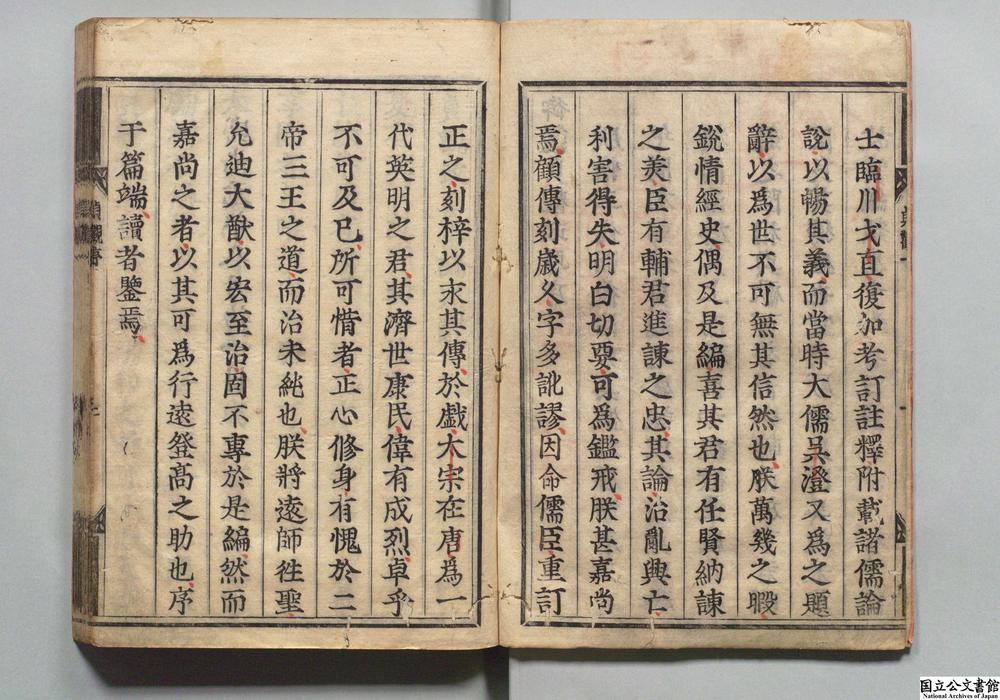 士臨川戈直復加考訂註釋附載諸儒論
說以暢其義而當時大儒吳澄又為之題
辭以為世不可無其信然也朕萬幾之暇
銳情經史偶及是編喜其君有任賢納諫
之美臣有輔君進諫之忠其論治亂興亡
利害得失明白切要可為鑑戒朕甚嘉尚
焉顧傳刻歲久字多訛謬因命儒臣重訂
正之刻梓以永其傳於戲太宗在唐為一
代英明之君其濟世康民偉有成烈卓乎
不可及已所可惜者正心修身有愧於二
帝三王之道而治未純也朕將遠師往聖
允迪大猷以宏至治固不專於是編然而
嘉尚之者以其可為行遠登高之助也序
于篇端讀者鑒焉
国立公文書館
National Archives of Japan